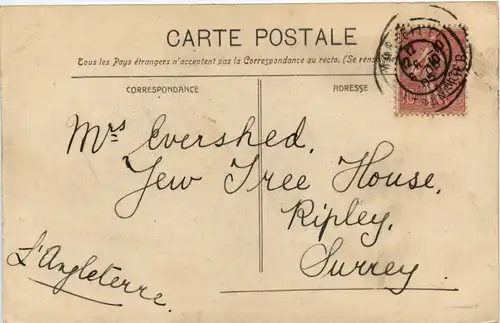 CARTE POSTALE
Tous les Pays étrangers n'acceptent pas la Correspondance au recto. (Se rense
CORRESPONDANCE
ADRESSE
Mrs Evershed,
Yew Tree House,
Ripley,
Surrey.
L'Angleterre.